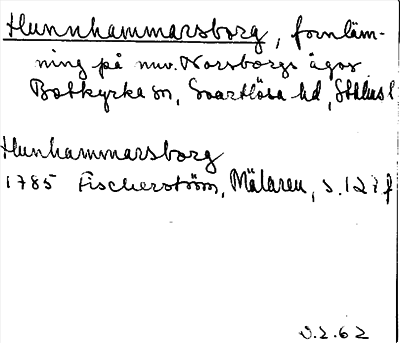 Hunnhammarsborg, fornläm-
ning på nuv. Norsborgs ägor
Botkyrka sn, Svartlösa hd, Sthlms l
Hunhammarsborg
1785 Fischerström, Mälaren, s. 127 f
O.2.62